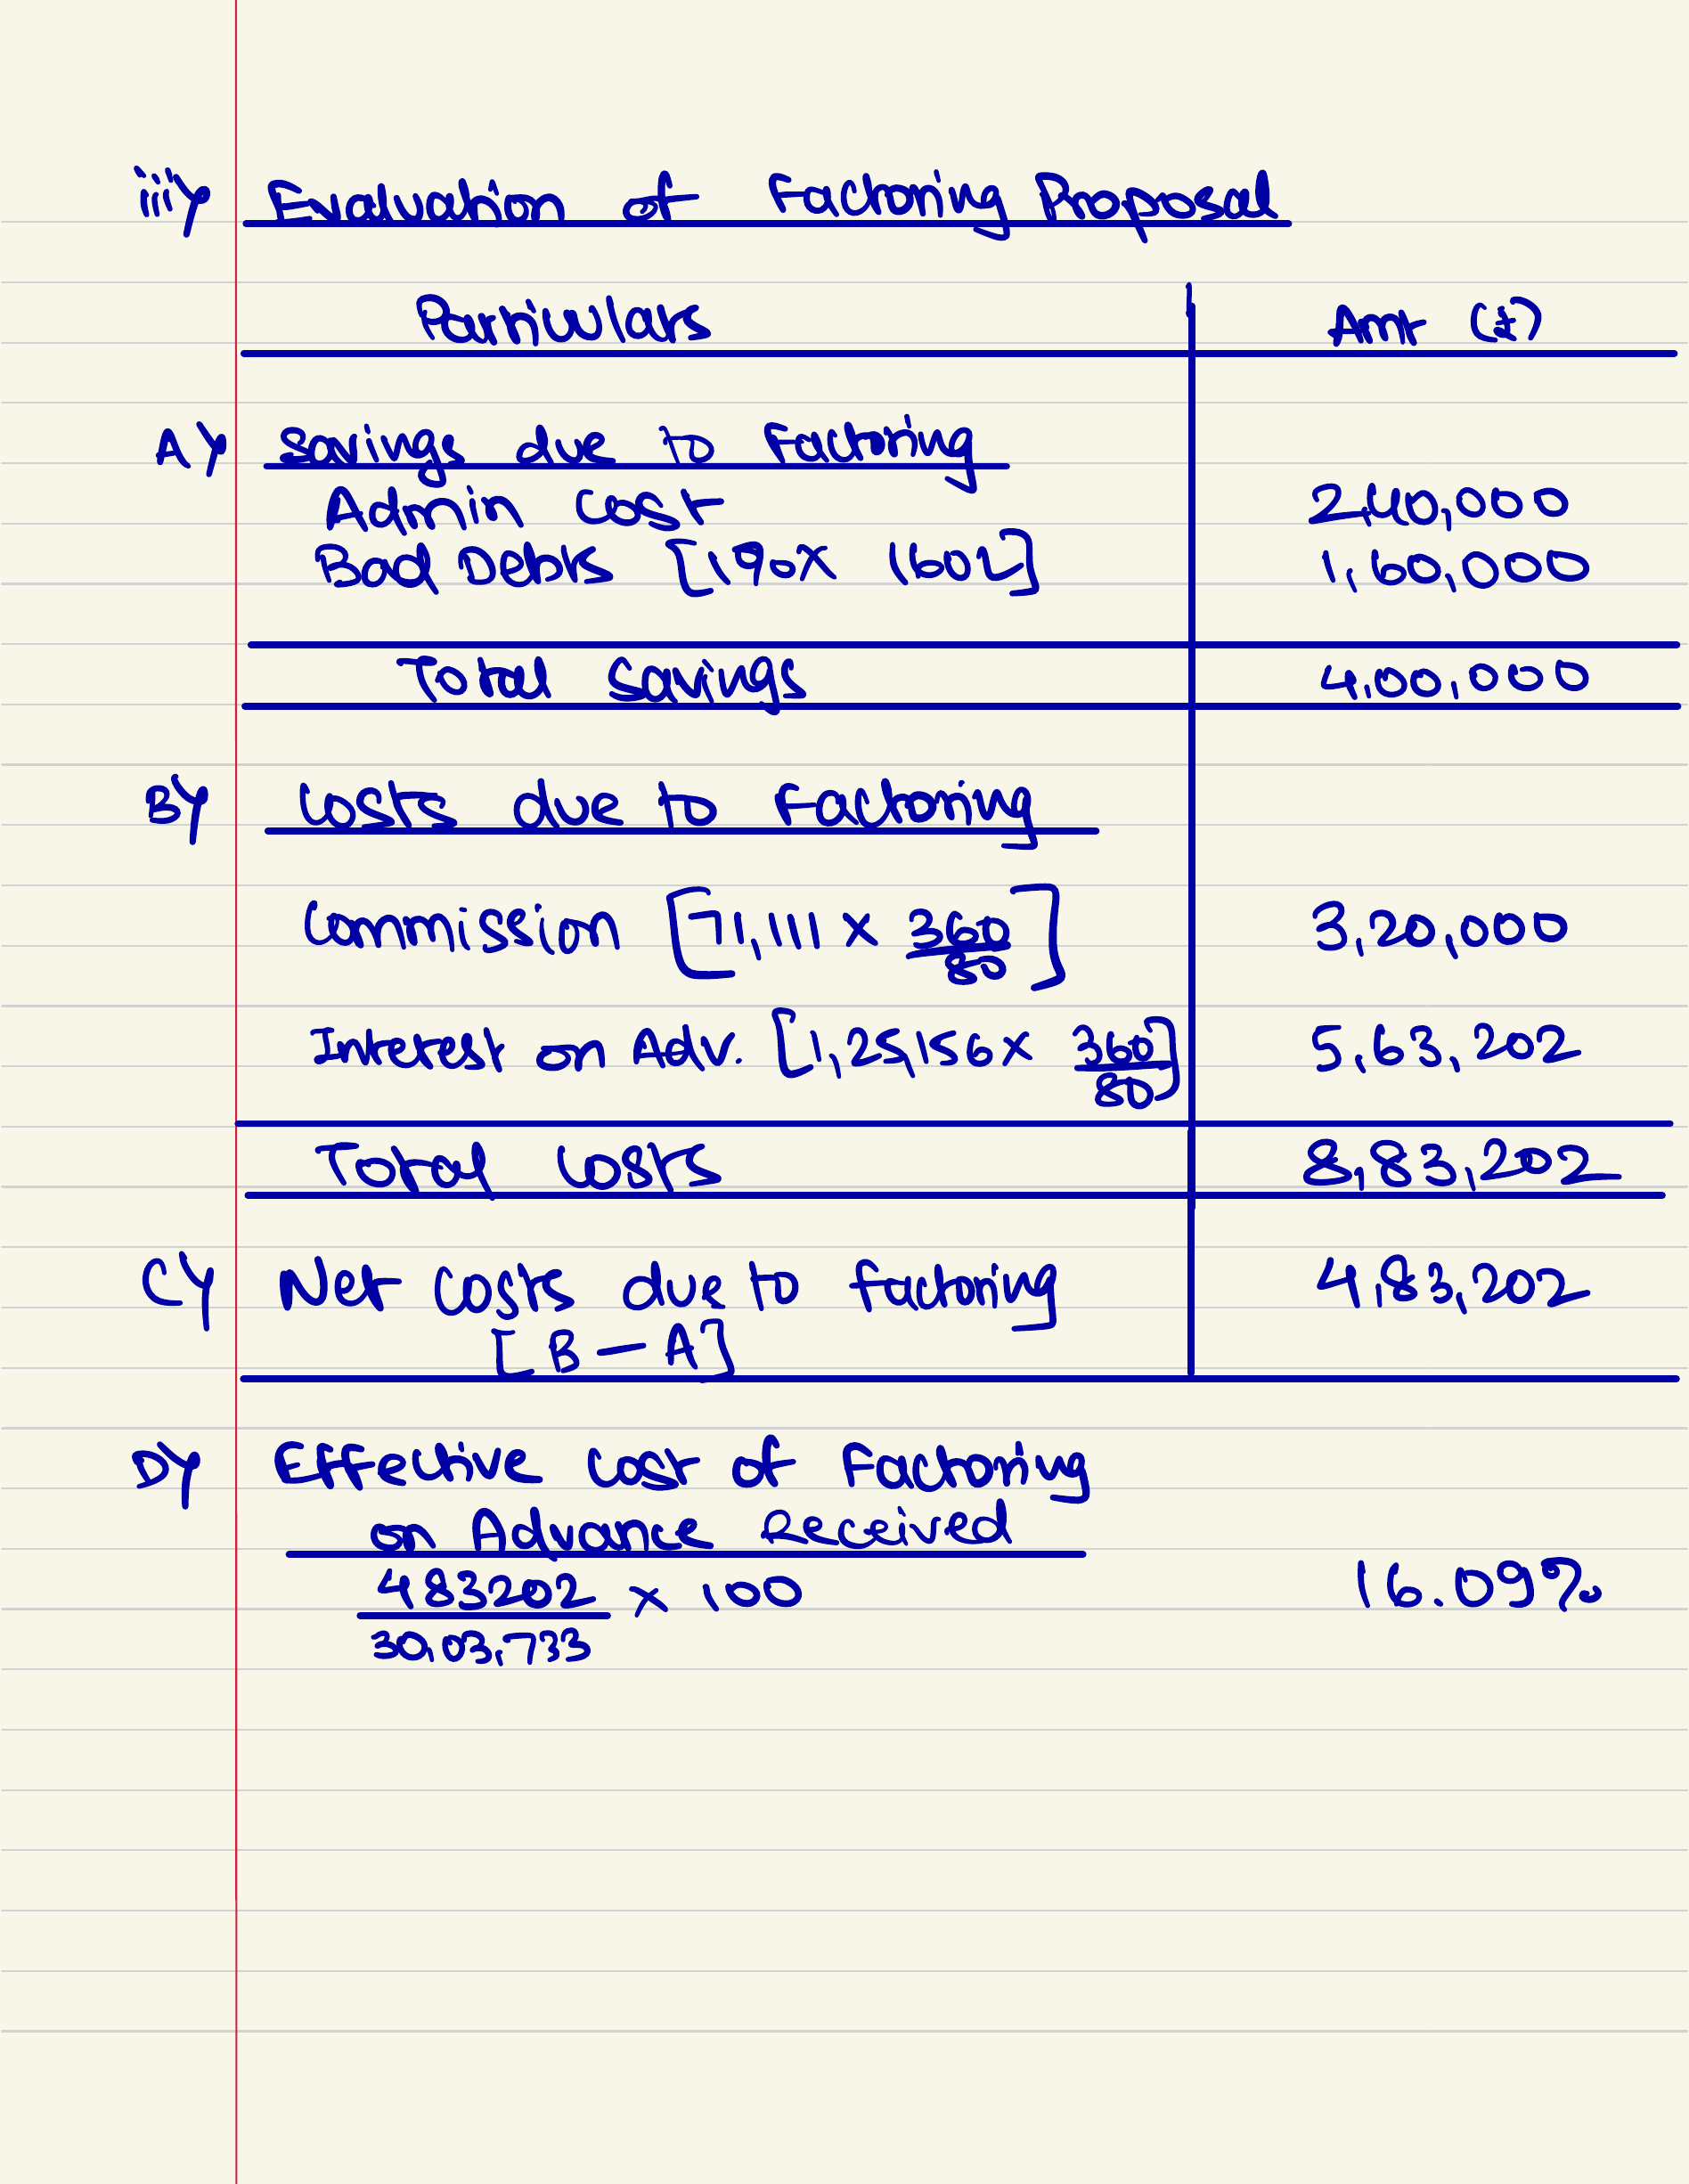 iii) Evaluation of Factoring Proposal
Particulars Amt (₹)
A) Savings due to Factoring
Admin Cost 2,40,000
Bad Debts [1% x 160L] 1,60,000
Total Savings 4,00,000
B) Costs due to Factoring
Commission [71,111 x 360/80] 3,20,000
Interest on Adv. [1,25,156 x 360/80] 5,63,202
Total Costs 8,83,202
C) Net Costs due to factoring 4,83,202
[B - A]
D) Effective Cost of Factoring
on Advance Received
483202/30,03,733 x 100 16.09%